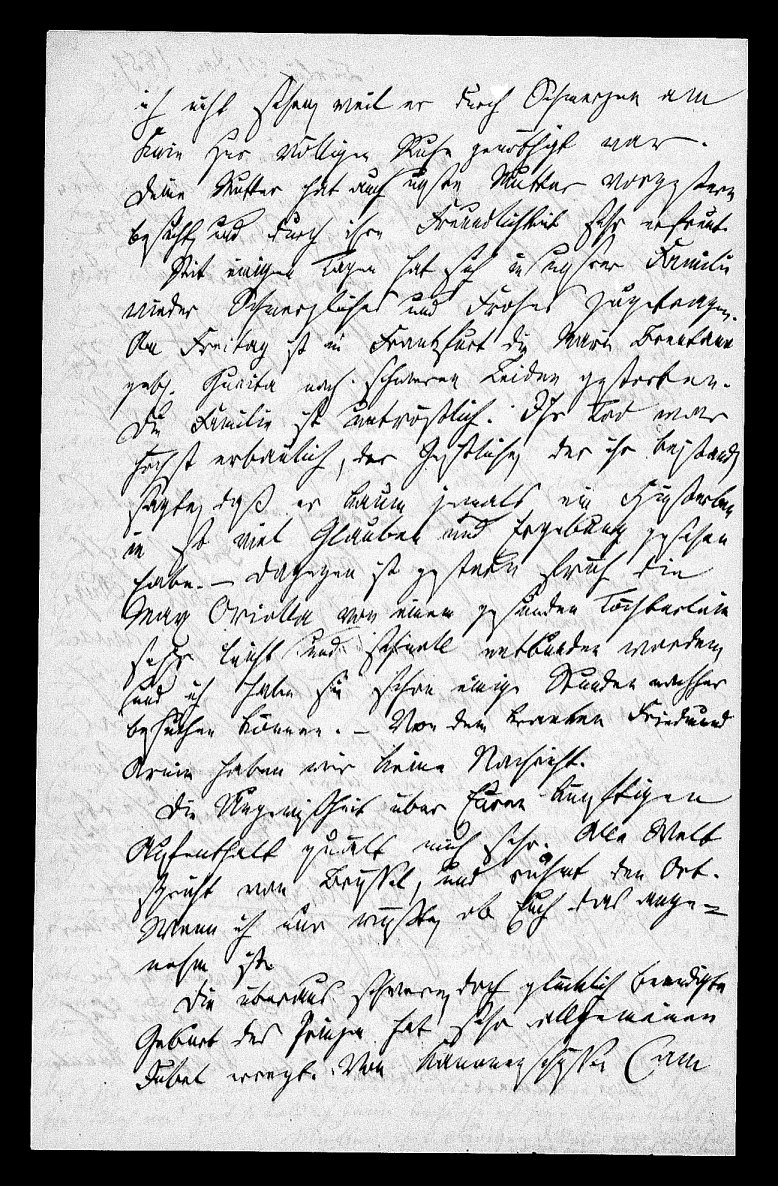 ich nicht sehen, weil er durch Schmerzen am
Knie zur völligen Ruhe genöthigt war.
Deine Mutter hat auch unsre Mutter vorgestern
besucht, und durch ihre Freundlichkeit sehr erfreut.
Seit einigen Tagen hat sich in unsrer Familie
wieder Schmerzliches und Frohes zugetragen.
Am Freitag ist in Frankfurt die Marie Brentano
geb. Guaita nach schweren Leiden gestorben.
Die Familie ist untröstlich. Ihr Tod war
höchst erbaulich, der Geistliche, der ihr beistand,
sagte, daß er kaum jemals ein Hinsterben
in so viel Glauben und Ergebung gesehen
habe. – Dagegen ist gestern früh die
Max Oriolla von einem gesunden Töchterlein
sehr leicht und schnell entbunden worden,
und ich habe sie schon einige Stunden nachher
besuchen können. – Von dem kranken Friedmund
Arnim haben wir keine Nachricht.
Die Ungewißheit über Euren künftigen
Aufenthalt quält mich sehr. Alle Welt
spricht von Brüssel, und rühmt den Ort.
Wenn ich nur wüßte, ob Euch das ange=
nehm ist.
Die überaus schwere, doch glücklich beendigte
Geburt des Prinzen hat sehr allgemeinen
Jubel erregt. Von Kanonenschüsse (am